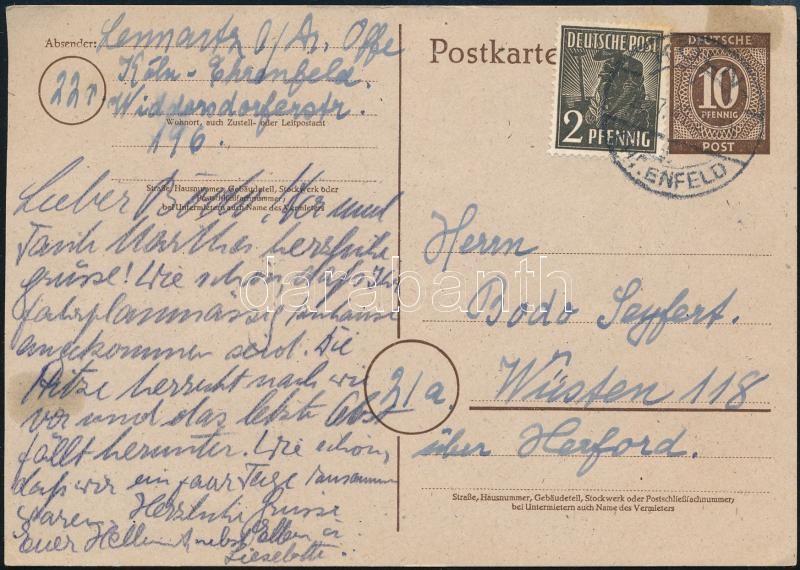 Absender: Lennartz
Köln-Ehrenfeld.
22
Widdersdorferstr.
Wohnort, auch Zustell- oder Leitpostamt
196.
Straße, Hausnummer, Gebäudeteil, Stockwerk oder
Postschließfachnummer,
bei Untermietern auch Name des Vermieters
Lieber und
Tante Martha herzliche
grüsse! Wie schön daß ihr
fahrplanmässig zuhause
angekommen seid. Die
Hitze herrscht nach wie
vor und das letzte Obst
fällt herunter. Wie schön,
daß wir ein paar Tage zusammen
waren. Herzliche Grüsse
Euer nebst
Lieselotte.
Postkarte
DEUTSCHE POST
2 PFENNIG
DEUTSCHE
10
PFENNIG
POST
ENFELD
Herrn
Bodo Seyfert.
21a.
Wüsten 118
über Herford.
Straße, Hausnummer, Gebäudeteil, Stockwerk oder Postschließfachnummer;
bei Untermietern auch Name des Vermieters
darabanth